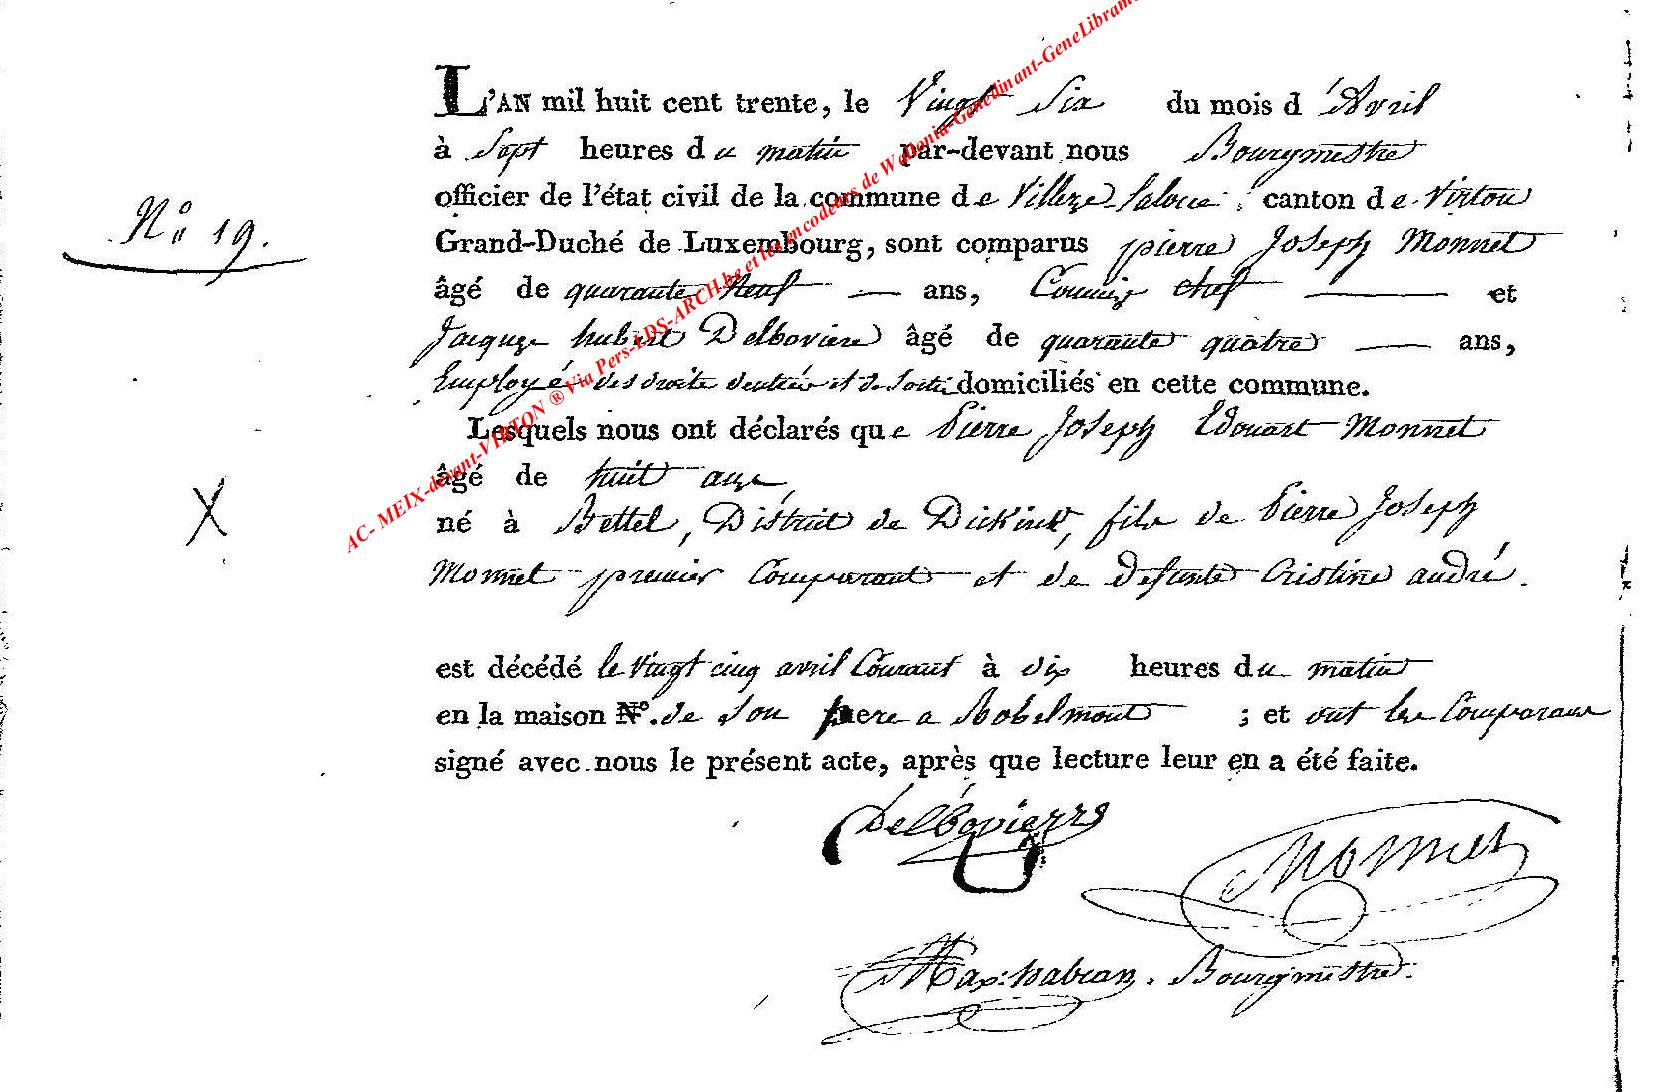 L'AN mil huit cent trente, le Vingt Six du mois d'Avril
à Sept heures du matin par-devant nous Bourgmestre
officier de l'état civil de la commune de Villerz-Laloue canton de Virton
N° 19.
Grand-Duché de Luxembourg, sont comparus pierre Joseph Monnet
âgé de quarante Neuf — ans, Commis chef — et
Jacque hubert Delboviere âgé de quarante quatre — ans,
Employé des droits d'entrée et de Sortie domiciliés en cette commune.
Lesquels nous ont déclarés que Pierre Joseph Edouart Monnet
âgé de huit ans
X
né à Bettel, District de Dickirck, fils de Pierre Joseph
Monnet premier Comparant et de Defunte Cristine andré.
est décédé le Vingt cinq avril Courant à dix heures du matin
en la maison N°. de Son pere a Robelmont ; et ont les Comparans
signé avec nous le présent acte, après que lecture leur en a été faite.
Delbovierre
Monnet
Bourgmestre.
AC- MEIX-devant-VIRTON ® Via Pers-LDS-ARCH.be et les encodeurs de Wallonia-Genedinant-GeneLibram